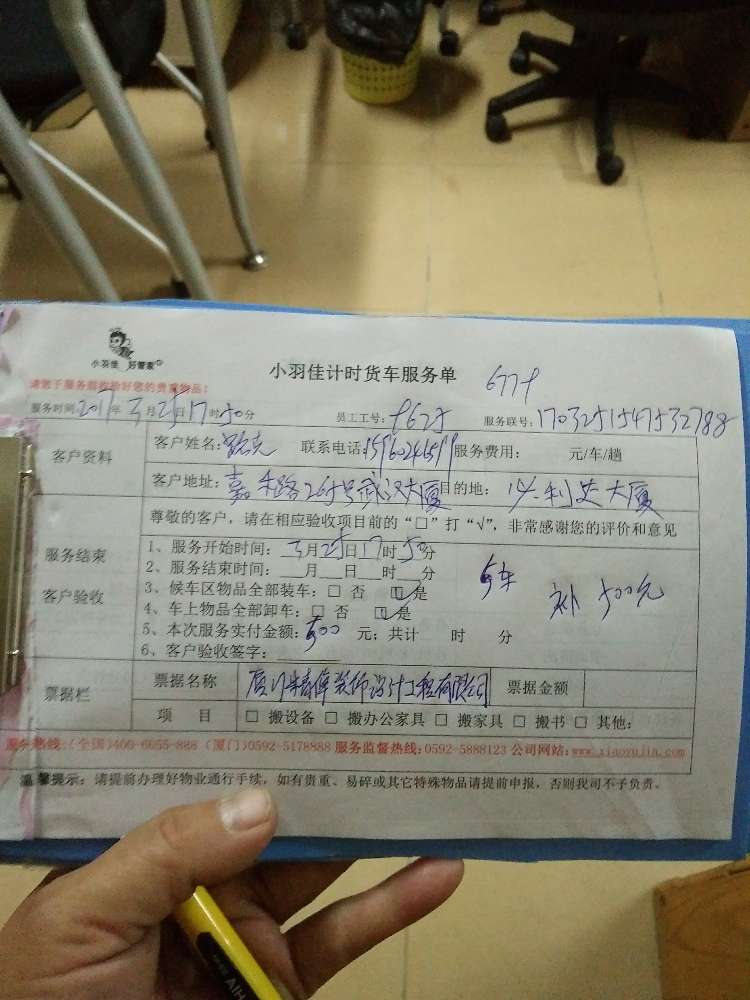 小羽佳 好管家
小羽佳计时货车服务单
请您于服务前收拾好您的贵重物品！
服务时间：2017年3月25日17时50分 员工工号： 服务联号：1703251547532788
客户资料
客户姓名： 联系电话： 服务费用： 元/车/趟
客户地址：嘉禾路265号武汉大厦 目的地：利史大厦
服务结束
客户验收
尊敬的客户，请在相应验收项目前的“□”打“√”，非常感谢您的评价和意见
1、服务开始时间：3月25日17时50分
2、服务结束时间：___月___日___时___分
3、候车区物品全部装车：□ 否 ☑是
4、车上物品全部卸车：□ 否 ☑是
5、本次服务实付金额：500 元；共计 时 分
6、客户验收签字：
5车 补 500元
票据栏
票据名称 装饰设计工程有限公司 票据金额
项 目 □ 搬设备 □ 搬办公家具 □ 搬家具 □ 搬书 □ 其他：
服务热线：(全国)400-6655-888 (厦门)0592-5178888 服务监督热线：0592-5888123 公司网站：www.xiaoyujia.com
温馨提示：请提前办理好物业通行手续，如有贵重、易碎或其它特殊物品请提前申报，否则我司不予负责。